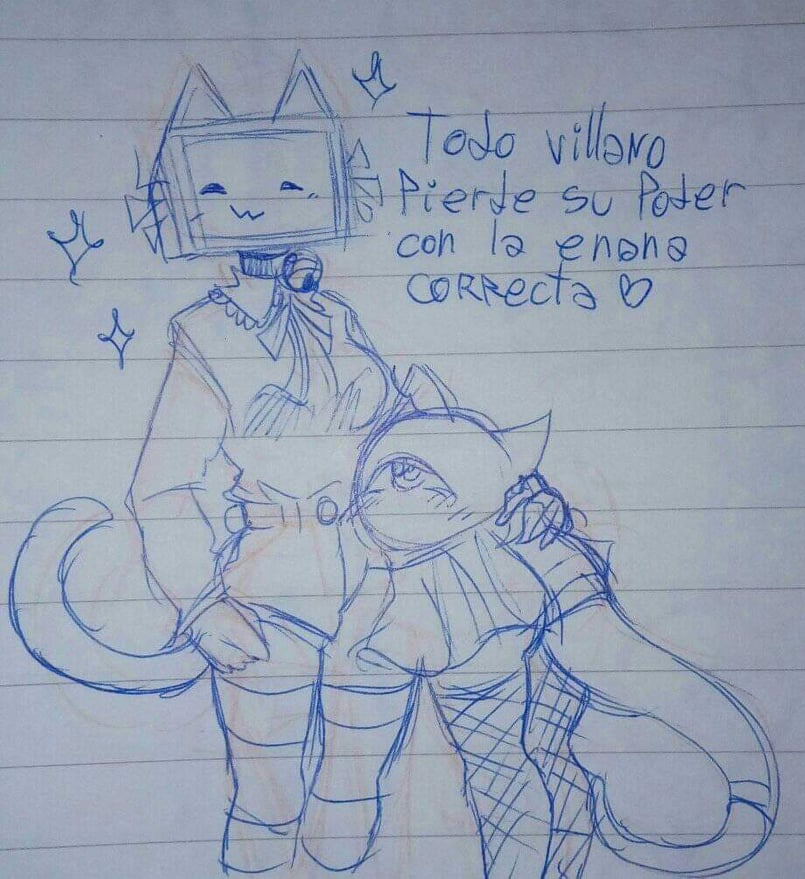 Todo villano
Pierde su Poder
con la enana
CORRecta ♡